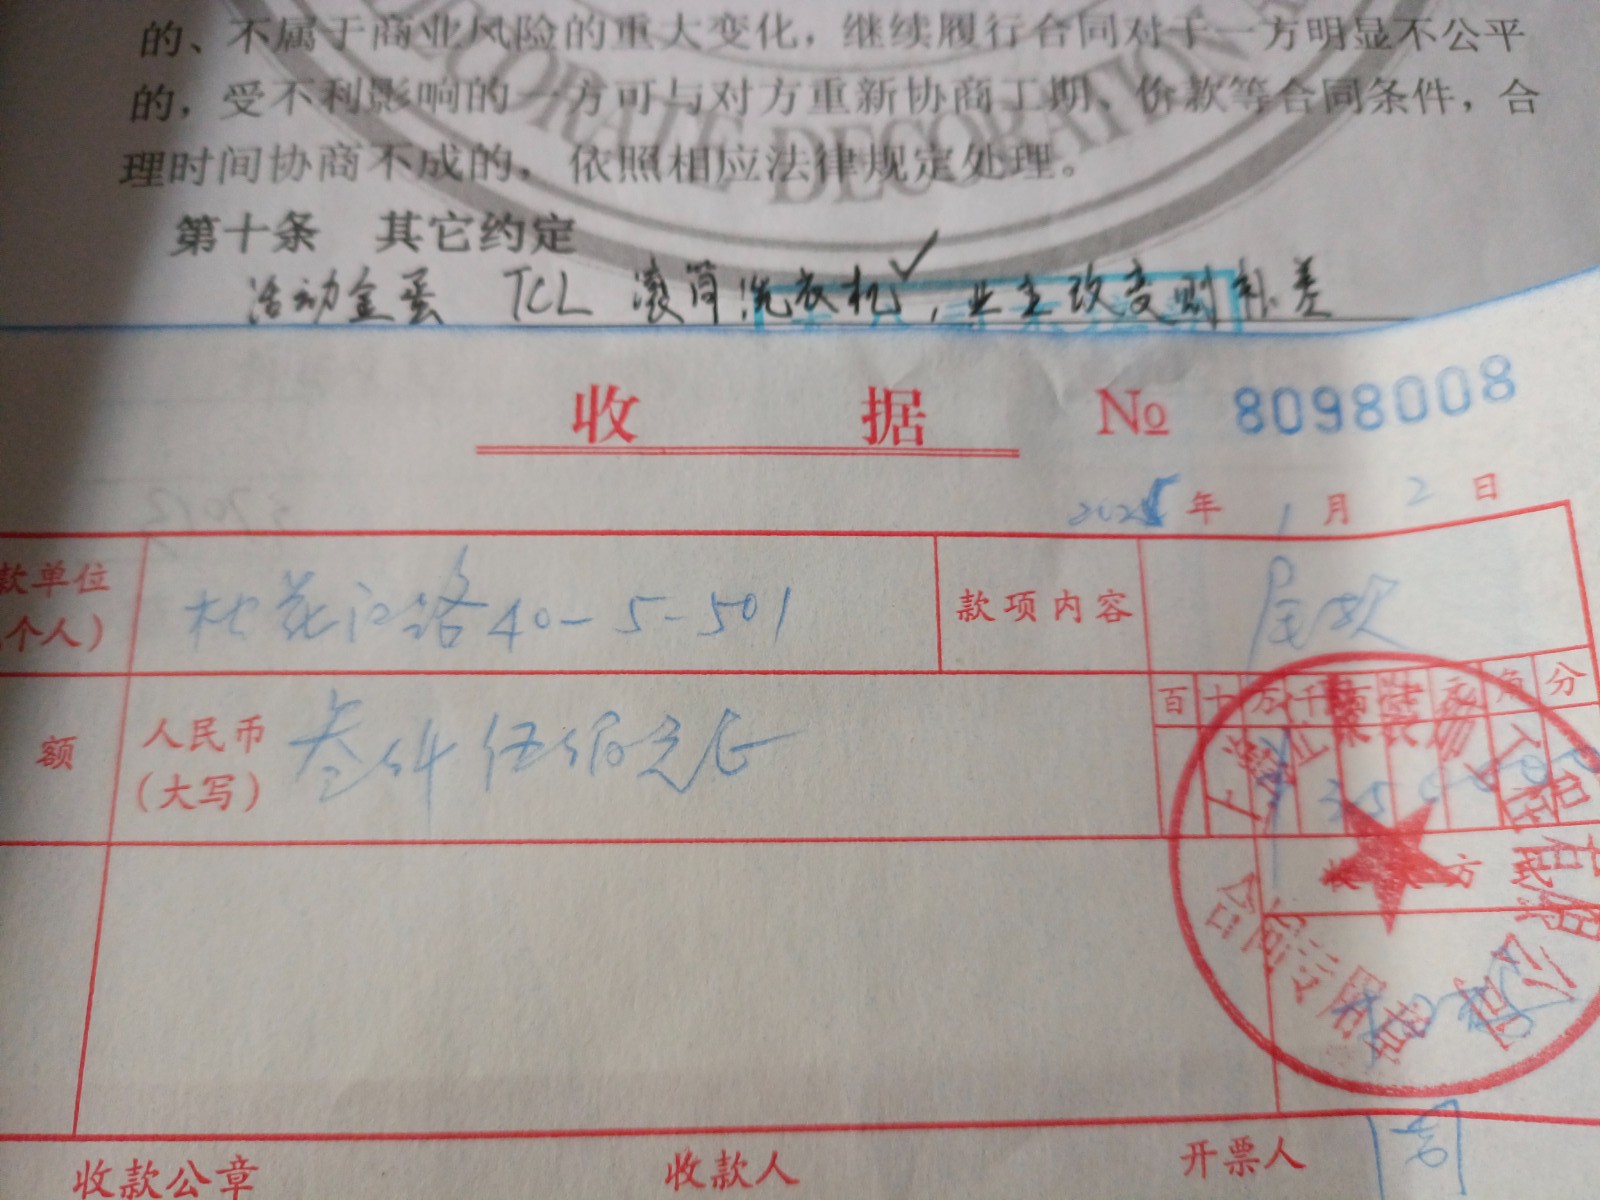 的、不属于商业风险的重大变化，继续履行合同对于一方明显不公平
的，受不利影响的一方可与对方重新协商工期、价款等合同条件，合
理时间协商不成的，依照相应法律规定处理。
DECORATE DECORATION
第十条 其它约定
活动金蛋 TCL 滚筒洗衣机✓，业主改变则补差
收 据 № 8098008
2025年1月2日
款单位
(个人)
松花江路40-5-501
款项内容
尾款
额
人民币
(大写)
叁仟伍佰元正
百十万千百 元角分
¥ 3500
合同专用章
收款公章 收款人 开票人